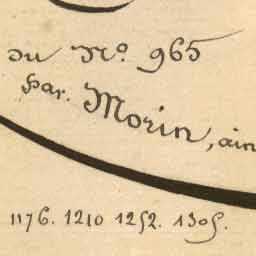 du N.o 965
Par. Morin, ain
1176. 1210 1252. 1305.